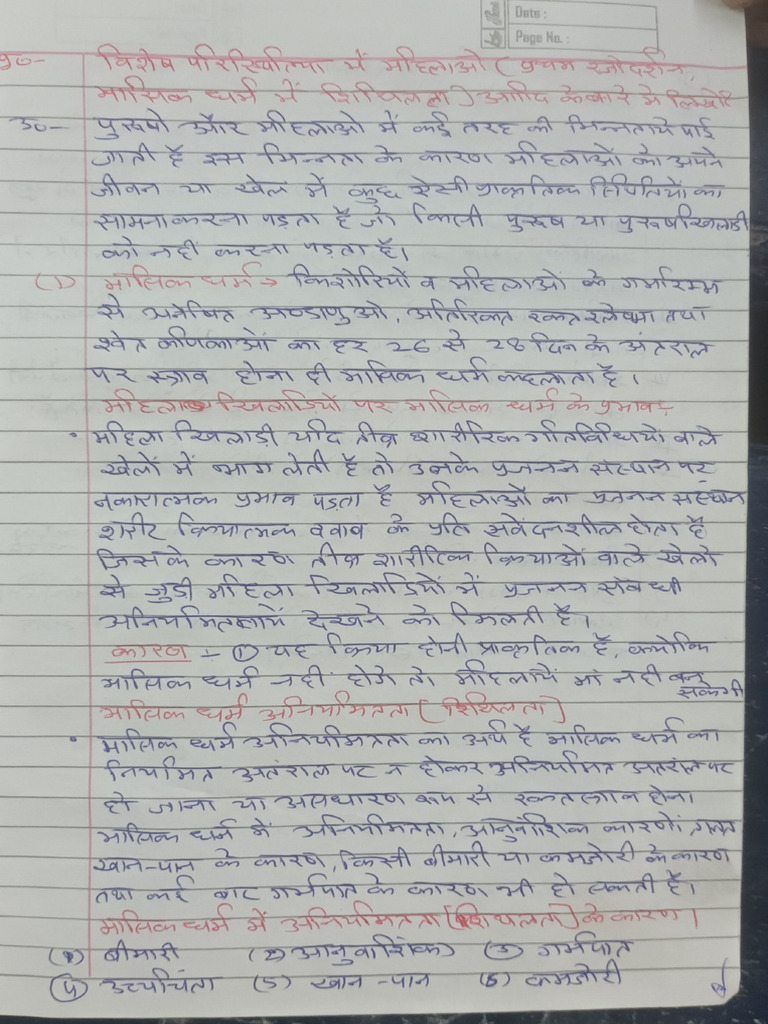 Date :
Page No. :
प्र०- विशेष परिस्थितियो में महिलाओ (प्रथम रजोदर्शन,
मासिक धर्म में शिथिलता) आदि के बारे मे लिखिए
उ०- पुरूषो और महिलाओ में कई तरह की भिन्नताये पाई
जाती है इस भिन्नता के कारण महिलाओं को अपने
जीवन या खेल में कुछ ऐसी प्राकृतिक स्थितियो का
सामना करना पड़ता है जो किसी पुरूष या पुरूष खिलाड़ी
को नहीं करना पड़ता है।
(1) मासिक धर्म → किशोरियों व महिलाओं के गर्भारम्भ
से अनिषेचित अण्डाणुओ, अतिरिक्त रक्त श्लेष्मा तथा
श्वेत कणिकाओं का हर 26 से 28 दिन के अंतराल
पर स्त्राव होना ही मासिक धर्म कहलाता है।
महिला खिलाडियों पर मासिक धर्म के प्रभाव
• महिला खिलाड़ी यदि तीव्र शारीरिक गतिविधियों वाले
खेलों में भाग लेती है तो उनके प्रजनन संस्थान पर
नकारात्मक प्रभाव पड़ता है महिलाओं का प्रजनन संस्थान
शरीर क्रियात्मक दवाव के प्रति संवेदनशील होता है
जिसके कारण तीव्र शारीरिक क्रियाओं वाले खेलो
से जुड़ी महिला खिलाडियों में प्रजनन संबंधी
अनियमिततायें देखने को मिलती है।
कारण :- (1) यह क्रिया होनी प्राकृतिक है, क्योकि
मासिक धर्म नहीं होगे तो महिलायें मां नही बन
सकेगी
मासिक धर्म अनियमितता (शिथिलता)
• मासिक धर्म अनियमितता का अर्थ है मासिक धर्म का
नियमित अतंराल पर न होकर अनियमित अतंराल पर
हो जाना या असधारण रूप से रक्तस्त्राव होना
मासिक धर्म में अनियमितता, अनुवांशिक कारणों, गलत
खान-पान के कारण, किसी बीमारी या कमजोरी के कारण
तथा कई बार गर्भपात के कारण भी हो सकती है।
मासिक धर्म में अनियमितता (शिथलता) के कारण।
(1) बीमारी (2) आनुवाशिक (3) गर्भपात
(4) उच्चचिंता (5) खान-पान (6) कमजोरी